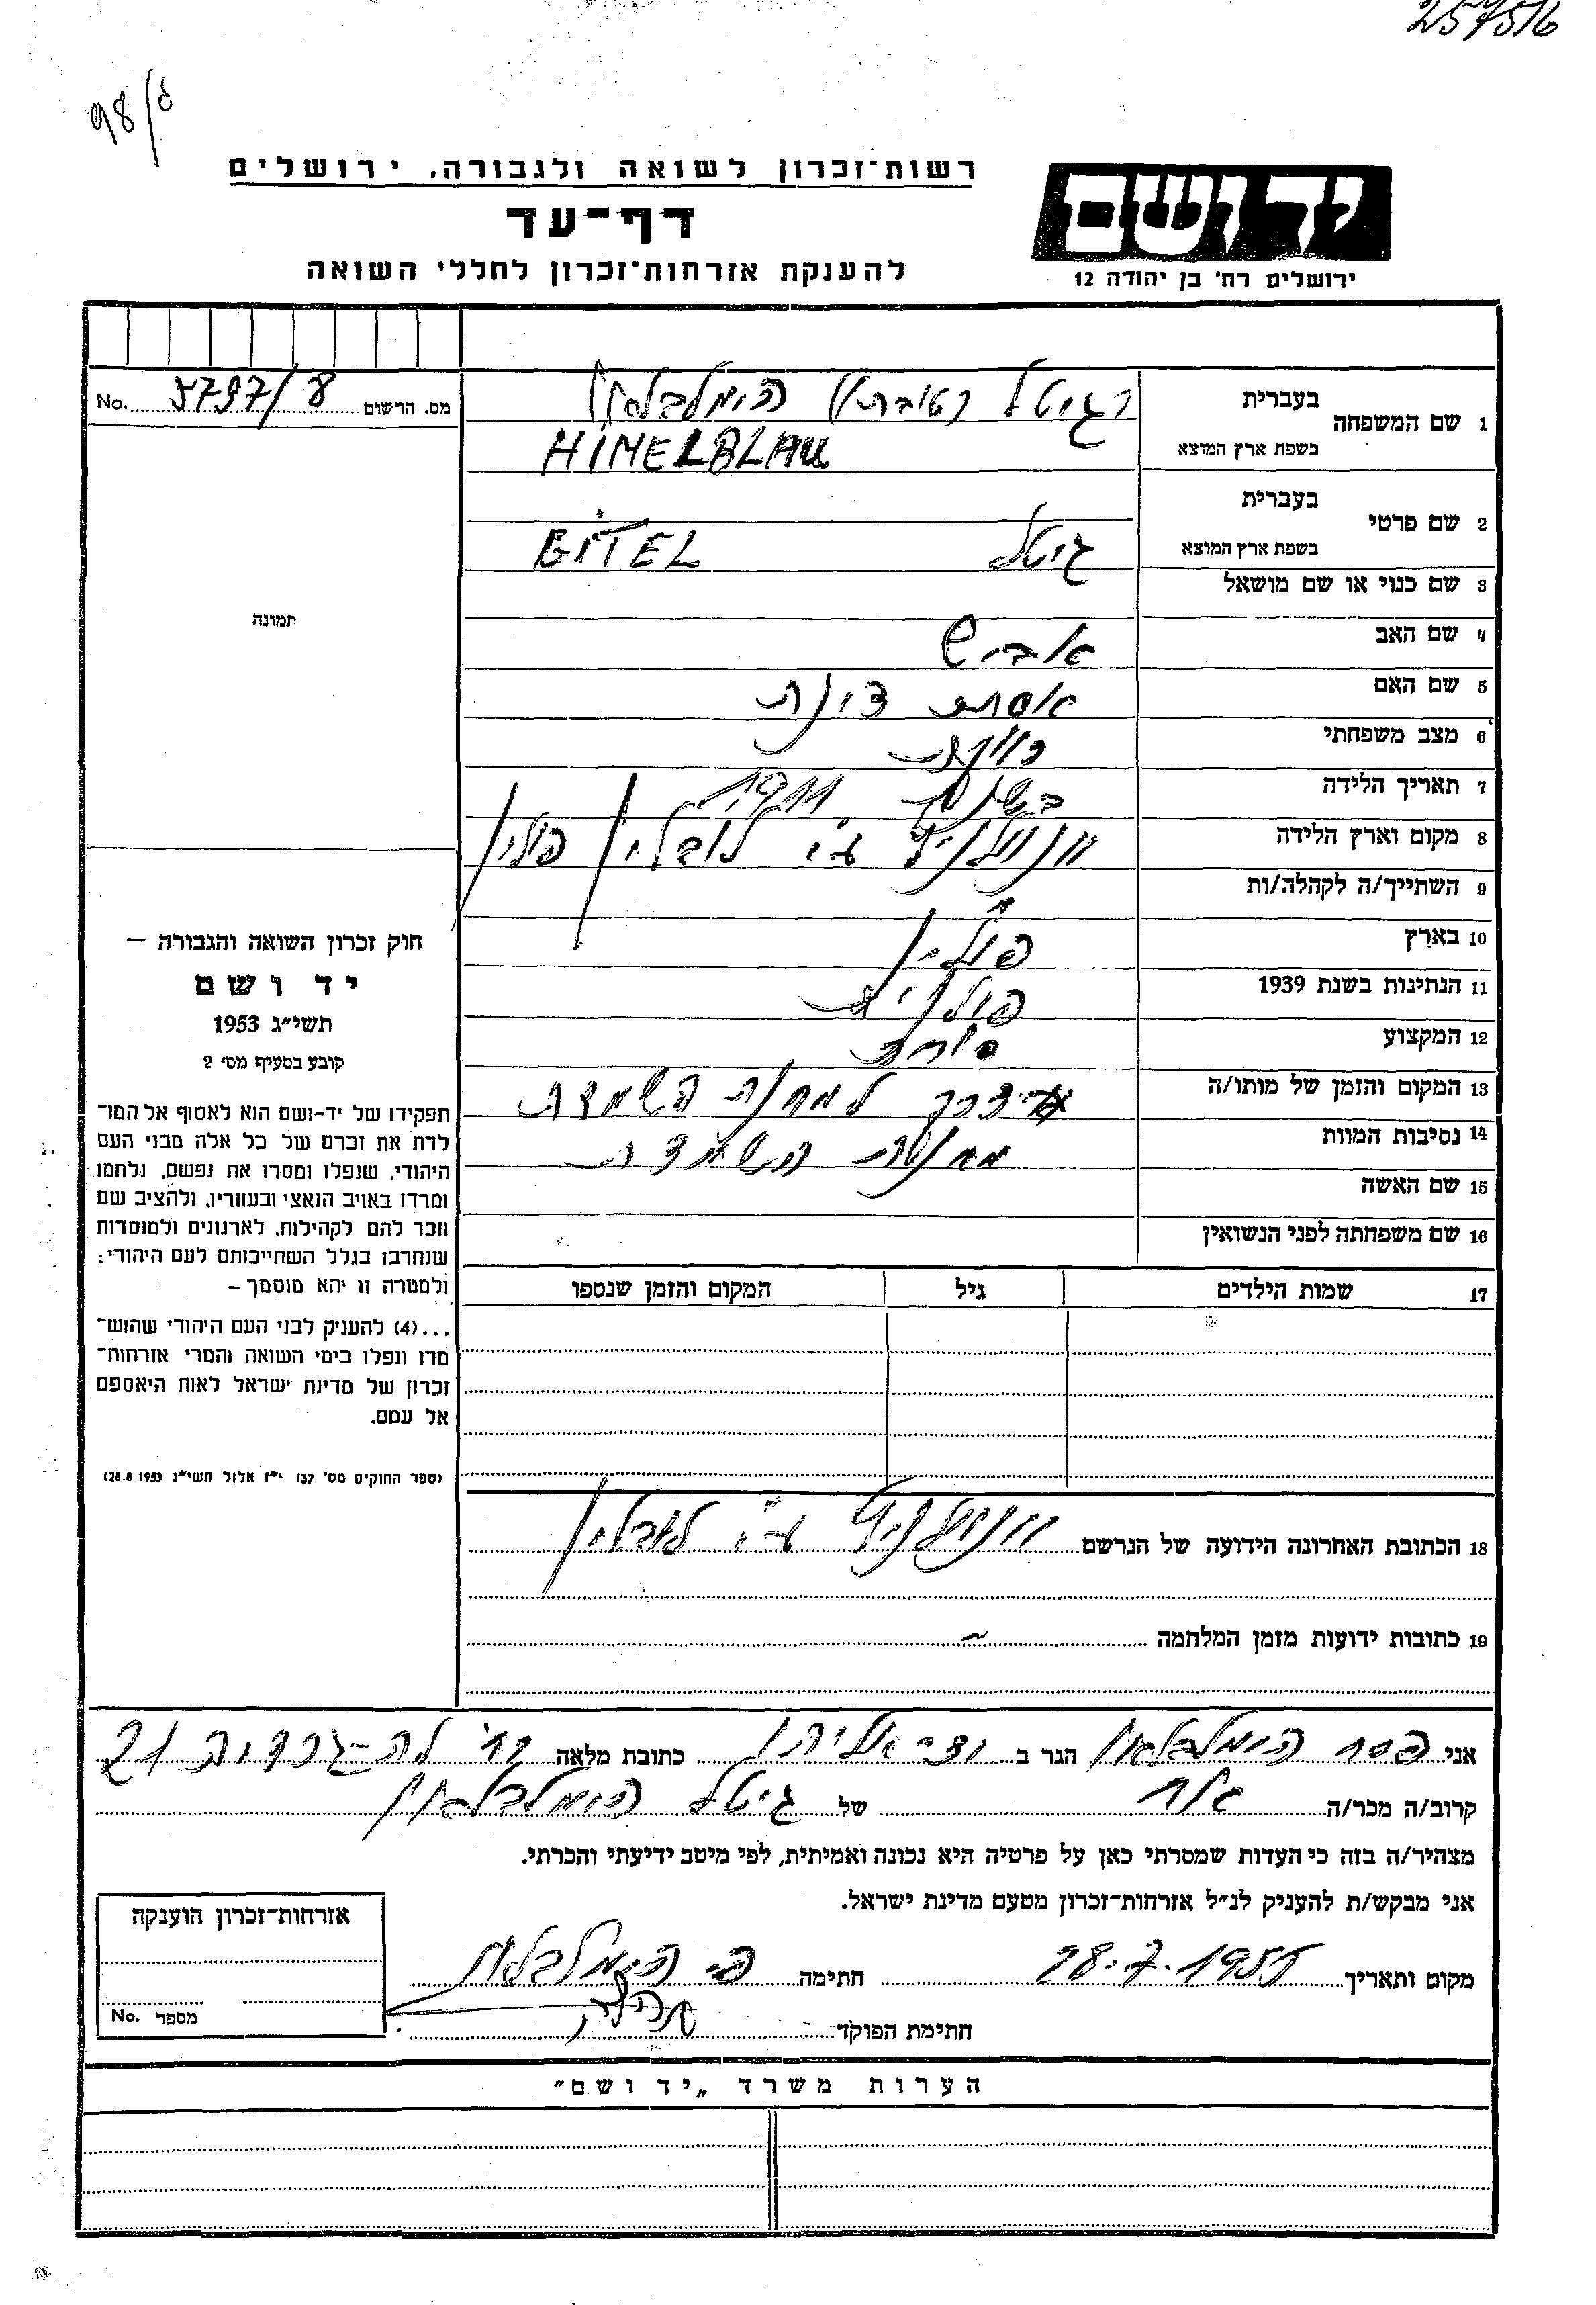 257516
98/
רשות־זכרון לשואה ולגבורה, ירושלים
יד ושם
דף־עד
ירושלים רח' בן יהודה 12
להענקת אזרחות־זכרון לחללי השואה
מס. הרשום 5797/8 No.
1 שם המשפחה
בעברית הימלבלאו
בשפת ארץ המוצא HIMELBLAU
2 שם פרטי
בעברית
בשפת ארץ המוצא גיטל GITEL
3 שם כנוי או שם מושאל
4 שם האב אביש
5 שם האם
6 מצב משפחתי רווקה
7 תאריך הלידה בשנת 1911
8 מקום וארץ הלידה ע"י לובלין פולין
9 השתייך/ה לקהלה/ות
10 בארץ פולין
11 הנתינות בשנת 1939 פולנית
12 המקצוע
13 המקום והזמן של מותו/ה למחנה השמדה
14 נסיבות המוות השמדה
15 שם האשה
16 שם משפחתה לפני הנשואין
17 שמות הילדים גיל המקום והזמן שנספו
תמונה
חוק זכרון השואה והגבורה –
יד ושם
תשי"ג 1953
קובע בסעיף מס' 2
תפקידו של יד-ושם הוא לאסוף אל המו־
לדת את זכרם של כל אלה מבני העם
היהודי, שנפלו ומסרו את נפשם, נלחמו
ומרדו באויב הנאצי ובעוזריו, ולהציב שם
וזכר להם לקהילות, לארגונים ולמוסדות
שנחרבו בגלל השתייכותם לעם היהודי;
ולמטרה זו יהא מוסמך –
...(4) להעניק לבני העם היהודי שהוש־
מדו ונפלו בימי השואה והמרי אזרחות־
זכרון של מדינת ישראל לאות היאספם
אל עמם.
(ספר החוקים מס' 132 י"ז אלול תשי"ג 28.8.1953)
18 הכתובת האחרונה הידועה של הנרשם ע"י לובלין
19 כתובות ידועות מזמן המלחמה –
אני פסח הימלבלאו הגר ב כתובת מלאה רח' 21
קרוב/ה מכר/ה אח של גיטל הימלבלאו
מצהיר/ה בזה כי העדות שמסרתי כאן על פרטיה היא נכונה ואמיתית, לפי מיטב ידיעתי והכרתי.
אני מבקש/ת להעניק לנ"ל אזרחות־זכרון מטעם מדינת ישראל.
מקום ותאריך 28.7.1955 חתימה פ. הימלבלאו
חתימת הפוקד
אזרחות־זכרון הוענקה
מספר No.
הערות משרד „יד ושם"